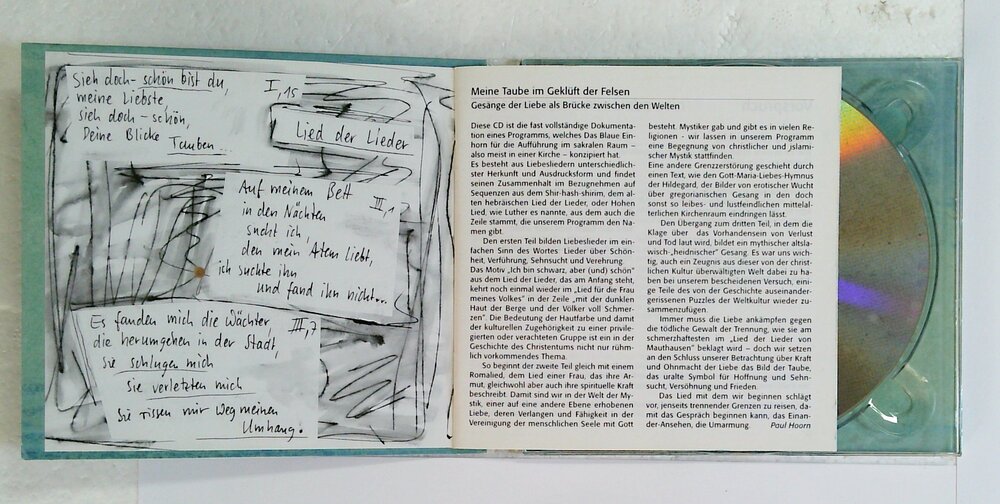 Sieh doch - schön bist du,
meine Liebste,
sieh doch - schön,
Deine Blicke
Tauben...
I,15
Lied der Lieder
Auf meinem Bett
in den Nächten
III,1
sucht ich,
den mein Atem liebt,
ich suchte ihn
und fand ihn nicht...
Es fanden mich die Wächter,
III,7
die herumgehen in der Stadt,
sie schlugen mich
sie verletzten mich
sie rissen mir weg meinen
Umhang.
Meine Taube im Geklüft der Felsen
Gesänge der Liebe als Brücke zwischen den Welten
Diese CD ist die fast vollständige Dokumenta-
tion eines Programms, welches Das Blaue Ein-
horn für die Aufführung im sakralen Raum –
also meist in einer Kirche – konzipiert hat.
Es besteht aus Liebesliedern unterschiedlich-
ster Herkunft und Ausdrucksform und findet
seinen Zusammenhalt im Bezugnehmen auf
Sequenzen aus dem Shir-hash-shirim, dem al-
ten hebräischen Lied der Lieder, oder Hohen
Lied, wie Luther es nannte, aus dem auch die
Zeile stammt, die unserem Programm den Na-
men gibt.
Den ersten Teil bilden Liebeslieder im ein-
fachen Sinn des Wortes: Lieder über Schön-
heit, Verführung, Sehnsucht und Verehrung.
Das Motiv „Ich bin schwarz, aber (und) schön"
aus dem Lied der Lieder, das am Anfang steht,
kehrt noch einmal wieder im „Lied für die Frau
meines Volkes" in der Zeile „mit der dunklen
Haut der Berge und der Völker voll Schmer-
zen". Die Bedeutung der Hautfarbe und damit
der kulturellen Zugehörigkeit zu einer privile-
gierten oder verachteten Gruppe ist ein in der
Geschichte des Christentums nicht nur rühm-
lich vorkommendes Thema.
So beginnt der zweite Teil gleich mit einem
Romalied, dem Lied einer Frau, das ihre Ar-
mut, gleichwohl aber auch ihre spirituelle Kraft
beschreibt. Damit sind wir in der Welt der My-
stik, einer auf eine andere Ebene erhobenen
Liebe, deren Verlangen und Fähigkeit in der
Vereinigung der menschlichen Seele mit Gott
besteht. Mystiker gab und gibt es in vielen Re-
ligionen - wir lassen in unserem Programm
eine Begegnung von christlicher und islami-
scher Mystik stattfinden.
Eine andere Grenzzerstörung geschieht durch
einen Text, wie den Gott-Maria-Liebes-Hymnus
der Hildegard, der Bilder von erotischer Wucht
über gregorianischen Gesang in den doch
sonst so leibes- und lustfeindlichen mittelal-
terlichen Kirchenraum eindringen lässt.
Den Übergang zum dritten Teil, in dem die
Klage über das Vorhandensein von Verlust
und Tod laut wird, bildet ein mythischer altsla-
wisch-„heidnischer" Gesang. Es war uns wich-
tig, auch ein Zeugnis aus dieser von der christ-
lichen Kultur überwältigten Welt dabei zu ha-
ben bei unserem bescheidenen Versuch, eini-
ge Teile des von der Geschichte auseinander-
gerissenen Puzzles der Weltkultur wieder zu-
sammenzufügen.
Immer muss die Liebe ankämpfen gegen
die tödliche Gewalt der Trennung, wie sie am
schmerzhaftesten im „Lied der Lieder von
Mauthausen" beklagt wird – doch wir setzen
an den Schluss unserer Betrachtung über Kraft
und Ohnmacht der Liebe das Bild der Taube,
das uralte Symbol für Hoffnung und Sehn-
sucht, Versöhnung und Frieden.
Das Lied mit dem wir beginnen schlägt
vor, jenseits trennender Grenzen zu reisen, da-
mit das Gespräch beginnen kann, das Einan-
der-Ansehen, die Umarmung. Paul Hoorn